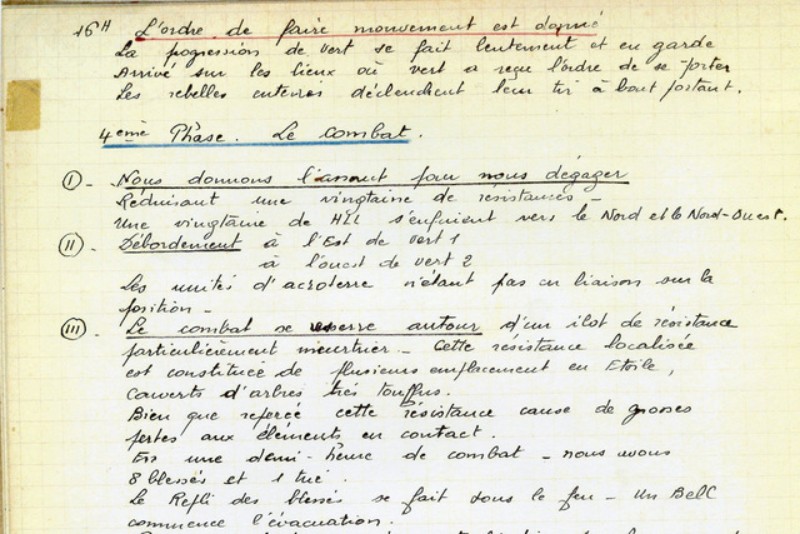 16H L'ordre de faire mouvement est donné
La pogression de Vert se fait lentement et en garde
Arrivé sur les lieux où vert a reçu l'ordre de se porter
Les rebelles enterrés déclenchent leur tir à bout portant.
4ème Phase. Le combat.
I - Nous donnons l'assaut pour nous dégager
Réduisant une vingtaine de résistances -
Une vingtaine de HLL s'enfuient vers le Nord et le Nord-Ouest.
II - Débordement à l'Est de Vert 1
à l'ouest de vert 2
Les unités d'acroterre n'étant pas en liaison sur la
position -
III - Le combat se resserre autour d'un ilot de résistance
particulièrement meurtrier - Cette résistance localisée
est constituée de plusieurs emplacement en Etoile,
couverts d'arbres très touffus.
Bien que cette résistance cause de grosses
pertes aux éléments en contact.
En une demi-heure de combat - nous avons
8 blessés et 1 tué.
Le Repli des blessés se fait sous le feu - Un Bell
commence l'évacuation.